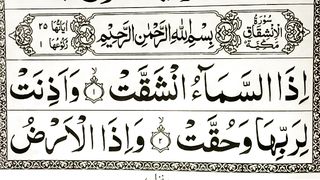 سُوْرَةُ الْاِنْشِقَاقِ مَكِّيَّةٌ
بِسْمِ اللّٰهِ الرَّحْمٰنِ الرَّحِيْمِ
اٰيَاتُهَا ٢٥ رُكُوْعُهَا ١
اِذَا السَّمَآءُ انْشَقَّتْ ۙ﴿۱﴾ وَاَذِنَتْ
لِرَبِّهَا وَحُقَّتْ ۙ﴿۲﴾ وَاِذَا الْاَرْضُ